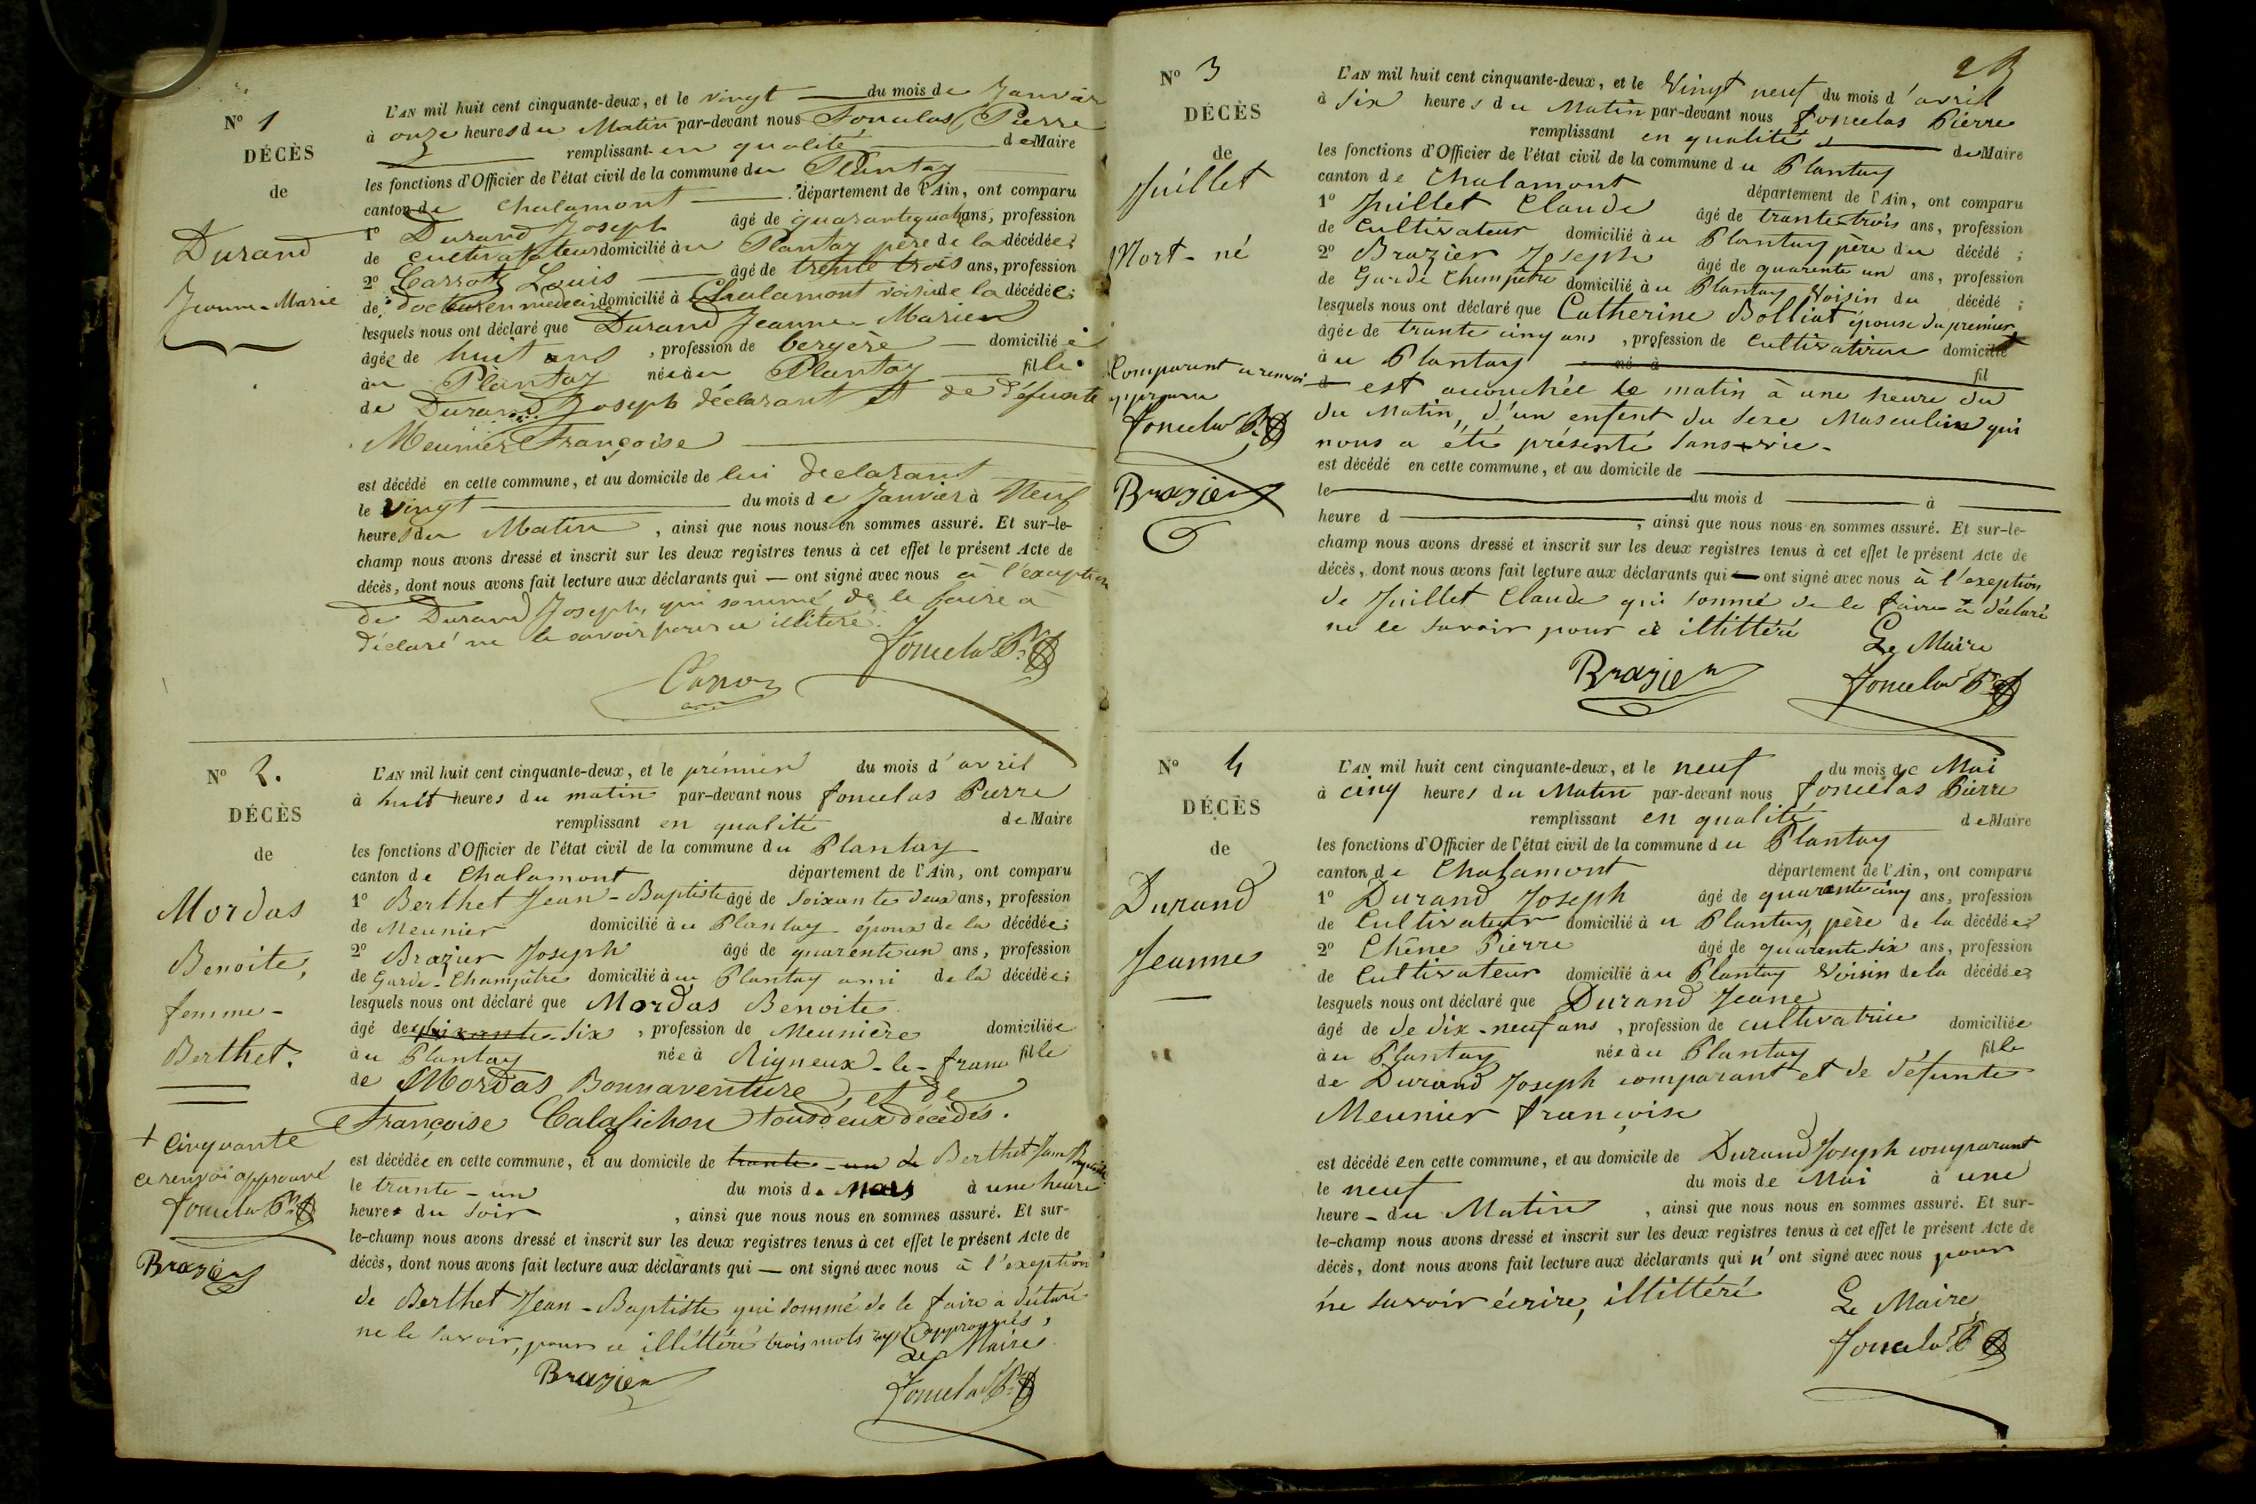 N° 1
DÉCÈS
de
Durand
Jeanne-Marie
L'AN mil huit cent cinquante-deux, et le vingt du mois de Janvier
à onze heures du Matin par-devant nous Fonculas Pierre
remplissant en qualité de Maire
les fonctions d'Officier de l'état civil de la commune du Plantay
canton de Chalamont département de l'Ain, ont comparu
1° Durand Joseph âgé de quarante quatre ans, profession
de cultivateur domicilié au Plantay père de la décédée;
2° Carrott Louis âgé de trente trois ans, profession
de docteur en médecin domicilié à Chalamont voisin de la décédée;
lesquels nous ont déclaré que Durand Jeanne-Marie
âgée de huit ans, profession de bergère domiciliée
au Plantay née au Plantay fille
de Durand Joseph déclarant et de défunte
Meunier Françoise
est décédé en cette commune, et au domicile de lui declarant
le vingt du mois de Janvier à Neuf
heures du Matin, ainsi que nous nous en sommes assuré. Et sur-le-
champ nous avons dressé et inscrit sur les deux registres tenus à cet effet le présent Acte de
décès, dont nous avons fait lecture aux déclarants qui — ont signé avec nous à l'exeption
de Durand Joseph, qui sommé de le faire a
déclaré ne le savoir pour ce illiteré.
Fonculas Pre
N° 2.
DÉCÈS
de
Mordas
Benoite,
femme-
Berthet.
+ Cinquante
ce renvoi approuvé
Fonculas Pre
Brazier
L'AN mil huit cent cinquante-deux, et le prémier du mois d'avril
à huit heures du matin par-devant nous Fonculas Pierre
remplissant en qualité de Maire
les fonctions d'Officier de l'état civil de la commune du Plantay
canton de Chalamont département de l'Ain, ont comparu
1° Berthet Jean-Baptiste âgé de Soixante deux ans, profession
de Meunier domicilié au Plantay époux de la décédée;
2° Brazier Joseph âgé de quarente un ans, profession
de Garde-Champêtre domicilié au Plantay ami de la décédée;
lesquels nous ont déclaré que Mordas Benoite
âgé de soixante-six, profession de Meunière domiciliée
au Plantay née à Rigneux-le-franc fille
de Mordas Bonnaventure, et de
Françoise Calafichon tous deux décédés.
est décédée en cette commune, et au domicile de trante-un de Berthet Jean Baptiste
le trante-un du mois de Mars à une heure
heure du Soir, ainsi que nous nous en sommes assuré. Et sur-
le-champ nous avons dressé et inscrit sur les deux registres tenus à cet effet le présent Acte de
décès, dont nous avons fait lecture aux déclarants qui — ont signé avec nous à l'exeption
de Berthet Jean-Baptiste qui sommé de le faire a déclaré
ne le savoir, pour ce illittéré trois mots rayés approuvés,
Le Maire
Brazier
Fonculas Pre
N° 3
DÉCÈS
de
Juillet
Mort-né
Comparant ce renvoi
approuvé
Fonculas Pre
Brazier
L'AN mil huit cent cinquante-deux, et le Vingt neuf du mois d'avril
à Six heures du Matin par-devant nous Fonculas Pierre
remplissant en qualité de Maire
les fonctions d'Officier de l'état civil de la commune du Plantay
canton de Chalamont département de l'Ain, ont comparu
1° Juillet Claude âgé de trante-trois ans, profession
de Cultivateur domicilié au Plantay père du décédé;
2° Brazier Joseph âgé de quarente un ans, profession
de Garde Champêtre domicilié au Plantay Voisin du décédé;
lesquels nous ont déclaré que Catherine Bolliat épouse du premier
âgée de trante cinq ans, profession de Cultivatrice domicilié
au Plantay né à fil
d est acouchée le matin à une heure du
du Matin, d'un enfent du Sexe Masculin qui
nous a été présenté Sans vie.
est décédé en cette commune, et au domicile de
le du mois d à
heure d, ainsi que nous nous en sommes assuré. Et sur-le-
champ nous avons dressé et inscrit sur les deux registres tenus à cet effet le présent Acte de
décès, dont nous avons fait lecture aux déclarants qui — ont signé avec nous à l'exeption
de Juillet Claude qui Sommé de le faire a déclaré
ne le Savoir pour ce illittéré
Le Maire
Brazier
Fonculas Pre
N° 4
DÉCÈS
de
Durand
Jeanne
L'AN mil huit cent cinquante-deux, et le neuf du mois de Mai
à cinq heures du Matin par-devant nous Fonculas Pierre
remplissant en qualité de Maire
les fonctions d'Officier de l'état civil de la commune du Plantay
canton de Chalamont département de l'Ain, ont comparu
1° Durand Joseph âgé de quarante cinq ans, profession
de Cultivateur domicilié au Plantay, père de la décédée;
2° Chêne Pierre âgé de quarente six ans, profession
de Cultivateur domicilié au Plantay Voisin de la décédée;
lesquels nous ont déclaré que Durand Jeane
âgé de de dix-neuf ans, profession de cultivatrice domiciliée
au Plantay née au Plantay fille
de Durand Joseph comparant et de défunte
Meunier françoise
est décédée en cette commune, et au domicile de Durand Joseph comparant
le neuf du mois de Mai à une
heure - du Matin, ainsi que nous nous en sommes assuré. Et sur-
le-champ nous avons dressé et inscrit sur les deux registres tenus à cet effet le présent Acte de
décès, dont nous avons fait lecture aux déclarants qui n'ont signé avec nous pour
ne savoir écrire, illittéré
Le Maire,
Fonculas Pre